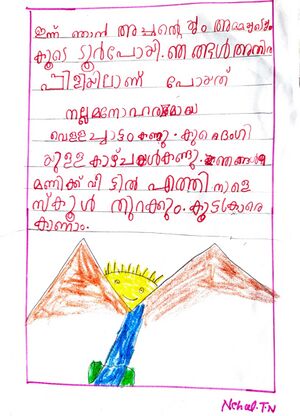 ഇന്ന് ഞാൻ അച്ഛന്റെയും അമ്മയുടെയും
കൂടെ ടൂർപോയി. ഞങ്ങൾ അതിര
പിള്ളിയിലാണ് പോയത്
നല്ല മനോഹരമായ
വെള്ളച്ചാട്ടം കണ്ടു. കുറെ ഭംഗി
യുള്ള കാഴ്ചകൾ കണ്ടു. ഞങ്ങൾ
മണിക്ക് വീട്ടിൽ എത്തി നാളെ
സ്കൂൾ തുറക്കും. കൂട്ടുകാരെ
കാണാം.
Nehal.T.N